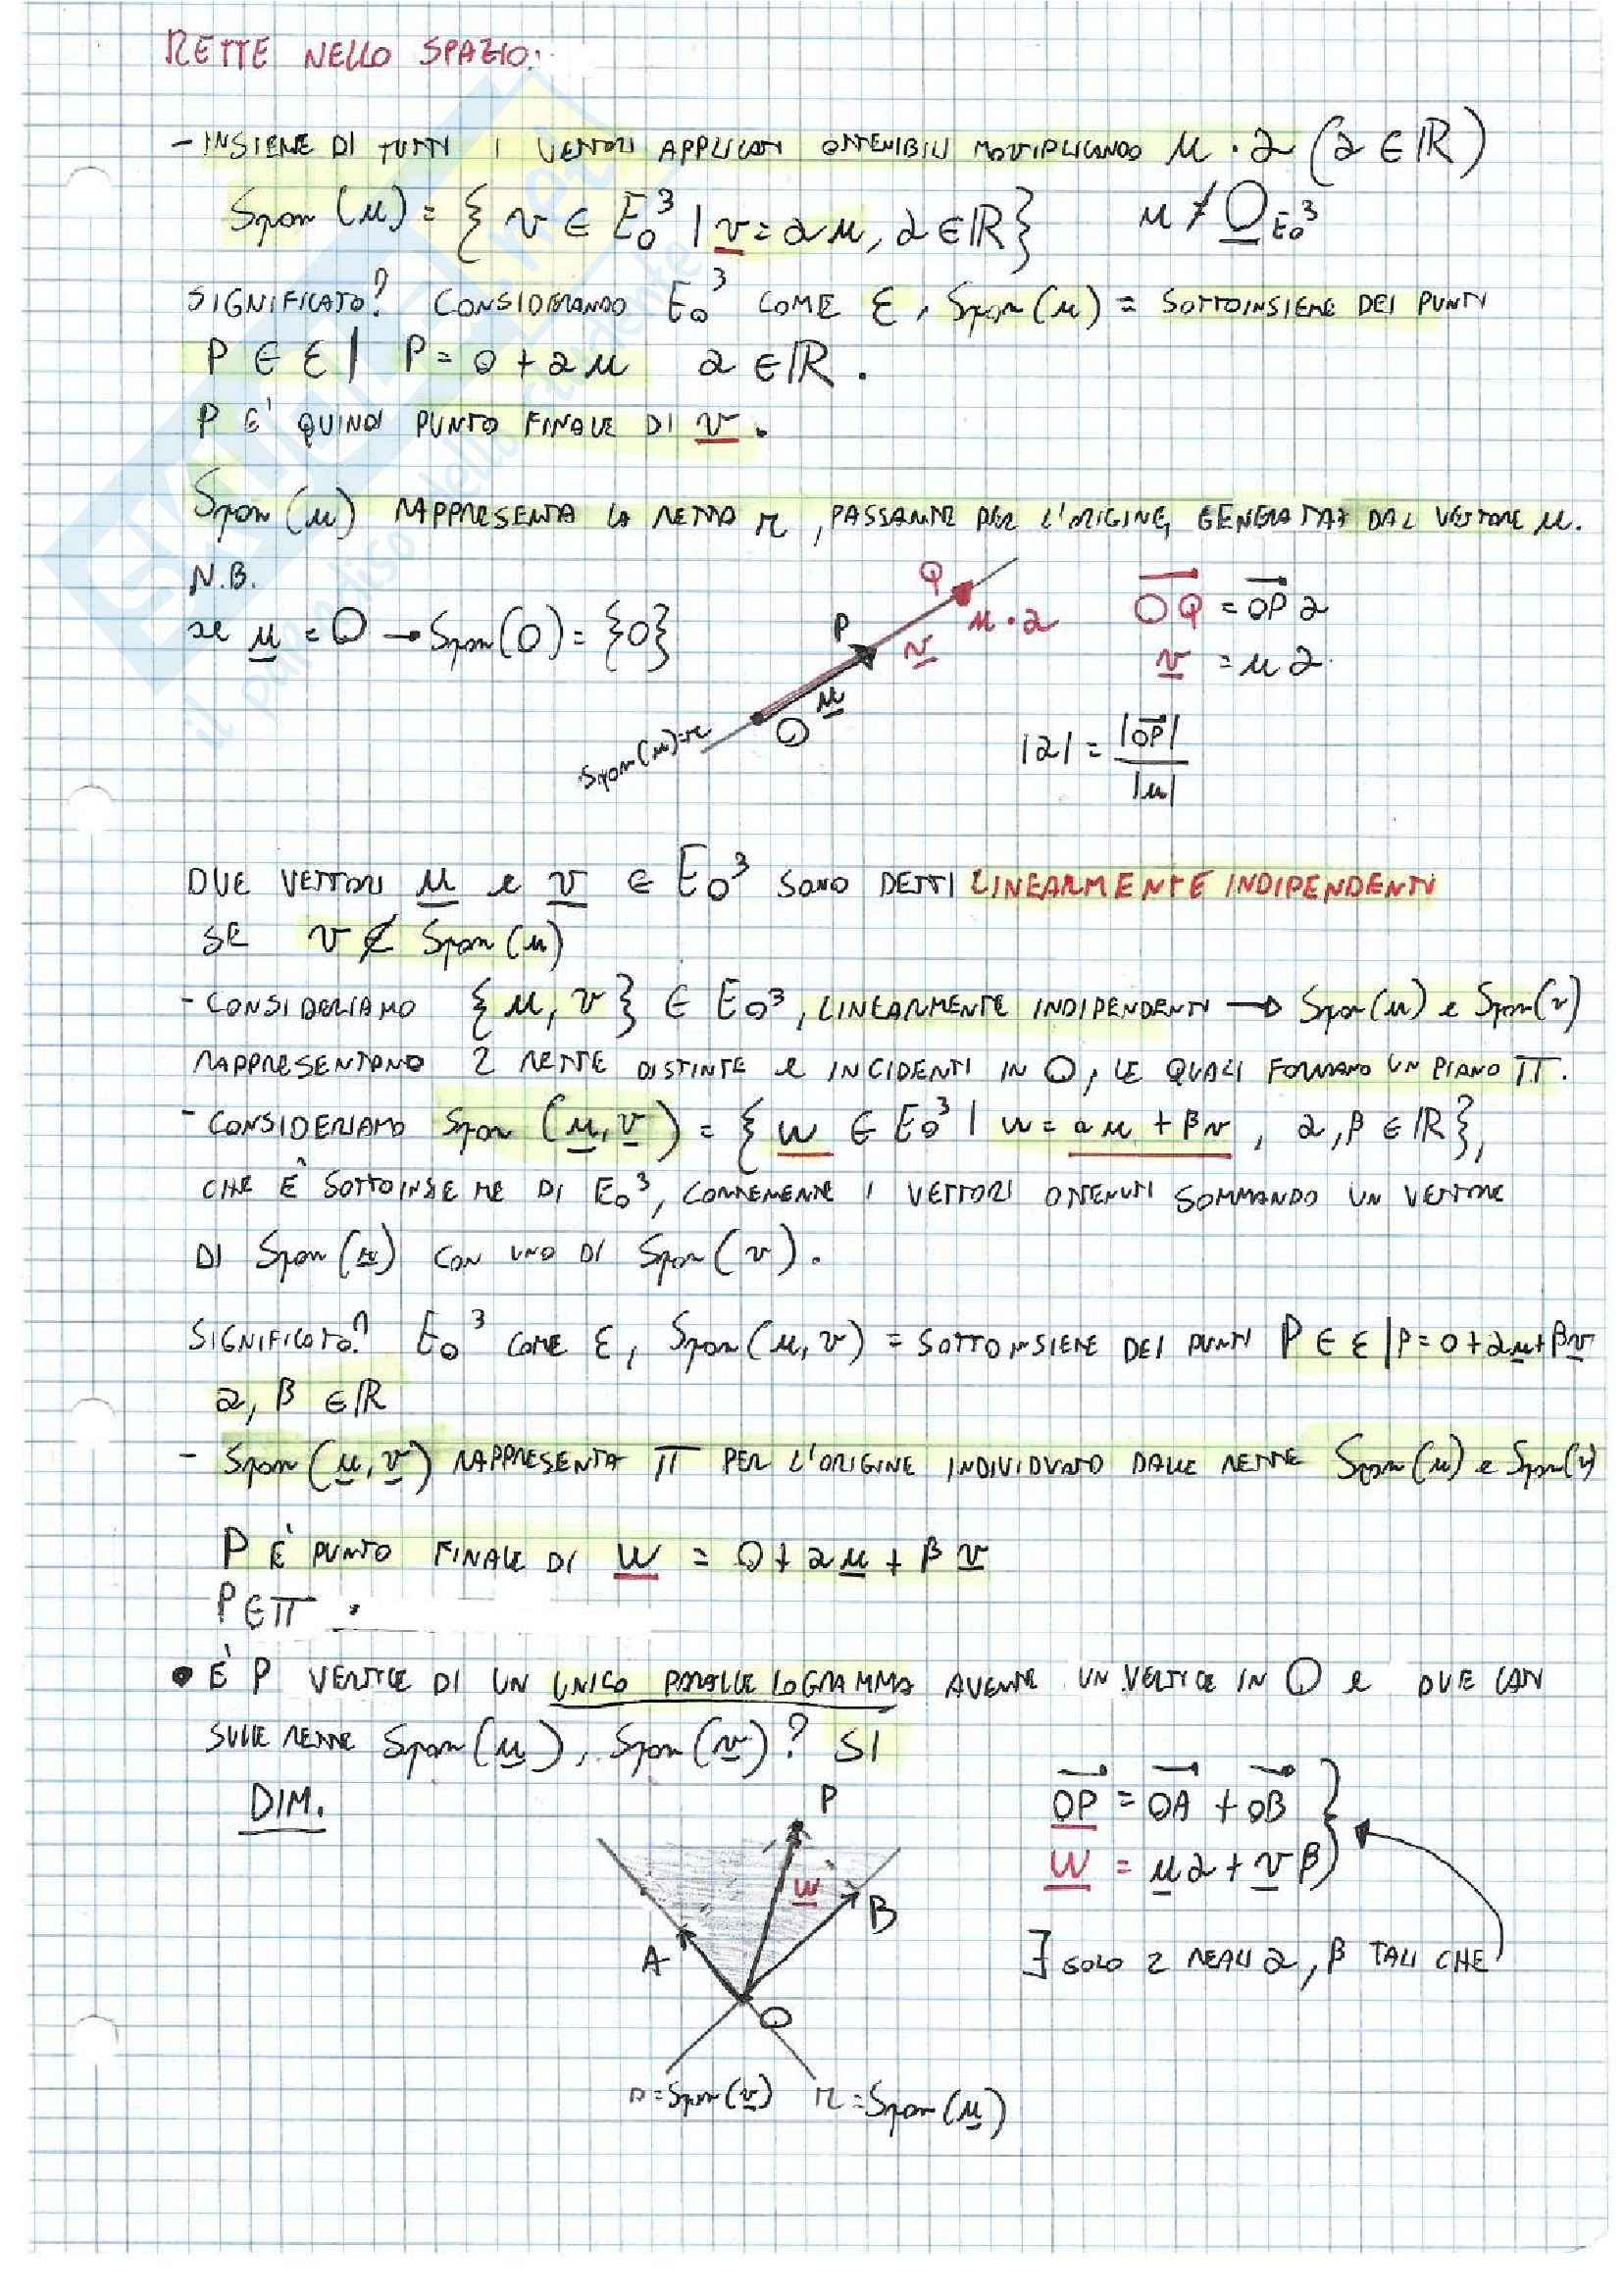 RETTE NELLO SPAZIO:
- INSIEME DI TUTTI I VETTORI APPLICATI OTTENIBILI MOLTIPLICANDO u · α (α ∈ ℝ)
Span (u) = { v ∈ E₀³ | v = αu, α ∈ ℝ} u ≠ O E₀³
SIGNIFICATO? CONSIDERANDO E₀³ COME Ɛ, Span(u) = SOTTOINSIEME DEI PUNTI
P ∈ Ɛ | P = O + αu α ∈ ℝ.
P E' QUINDI PUNTO FINALE DI v.
Span(u) RAPPRESENTA LA RETTA r, PASSANTE PER L'ORIGINE, GENERATA DAL VETTORE u.
N.B.
se u = O → Span(O) = {O}
Q
P
u · α
v
u
O
Span(u)=r
OQ = OP α
v = u α
|α| = |OP| / |u|
DUE VETTORI u e v ∈ E₀³ SONO DETTI LINEARMENTE INDIPENDENTI
SE v ∉ Span(u)
- CONSIDERIAMO {u, v} ∈ E₀³, LINEARMENTE INDIPENDENTI → Span(u) e Span(v)
RAPPRESENTANO 2 RETTE DISTINTE e INCIDENTI IN O, LE QUALI FORMANO UN PIANO π.
- CONSIDERIAMO Span (u, v) = { w ∈ E₀³ | w = αu + βv, α, β ∈ ℝ},
CHE È SOTTOINSIEME DI E₀³, CONTENENTE I VETTORI OTTENUTI SOMMANDO UN VETTORE
DI Span(u) CON UNO DI Span(v).
SIGNIFICATO? E₀³ COME Ɛ, Span(u, v) = SOTTOINSIEME DEI PUNTI P ∈ Ɛ | P = O + αu + βv
α, β ∈ ℝ
- Span(u, v) RAPPRESENTA π PER L'ORIGINE INDIVIDUATO DALLE RETTE Span(u) e Span(v)
P È PUNTO FINALE DI w = O + αu + βv
P ∈ π .
• È P VERTICE DI UN UNICO PARALLELOGRAMMA AVENTE UN VERTICE IN O e DUE LATI
SULLE RETTE Span(u), Span(v)? SI
DIM.
P
w
A
B
O
s=Span(v) r=Span(u)
OP = OA + OB }
w = uα + vβ
∃ SOLO 2 REALI α, β TALI CHE
SKUOLA.net
il paradiso dello studente